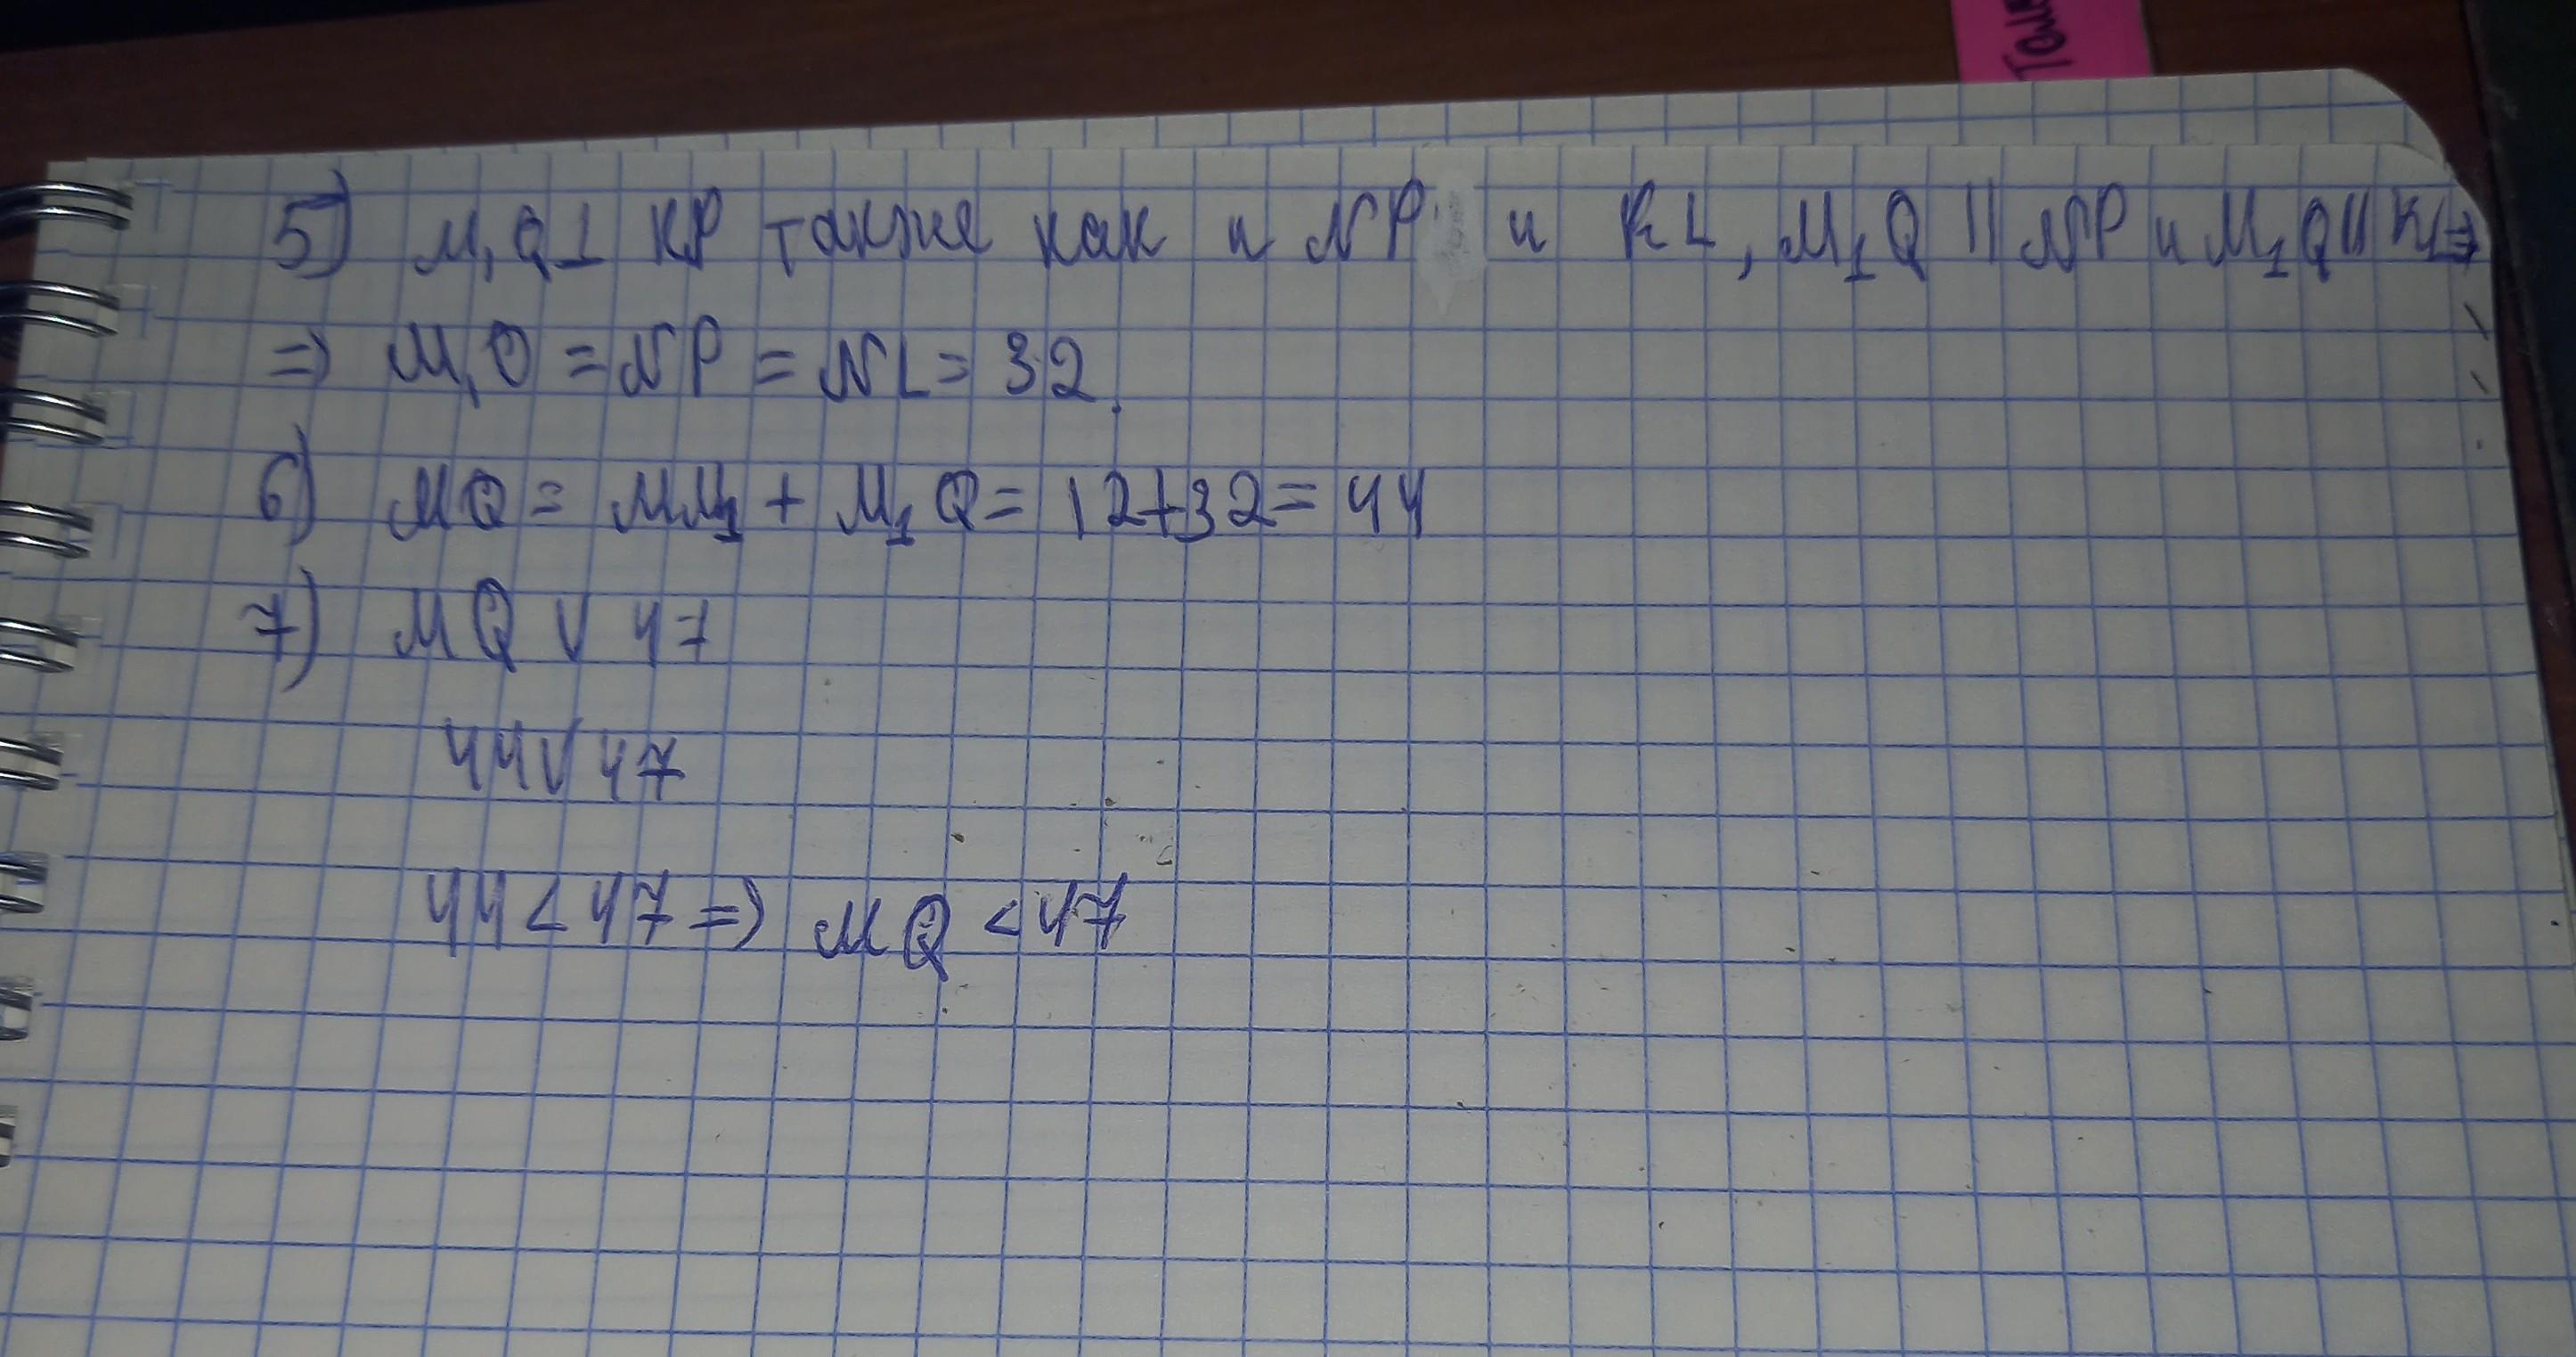 Толе
5) M₁Q⊥ KP также как и NP и KL, M₁Q || NP и M₁Q || KL ⇒
⇒ M₁Q = NP = NL = 32.
6) MQ = MM₁ + M₁Q = 12+32 = 44
7) MQ V 47
44 V 47
44 < 47 ⇒ MQ < 47